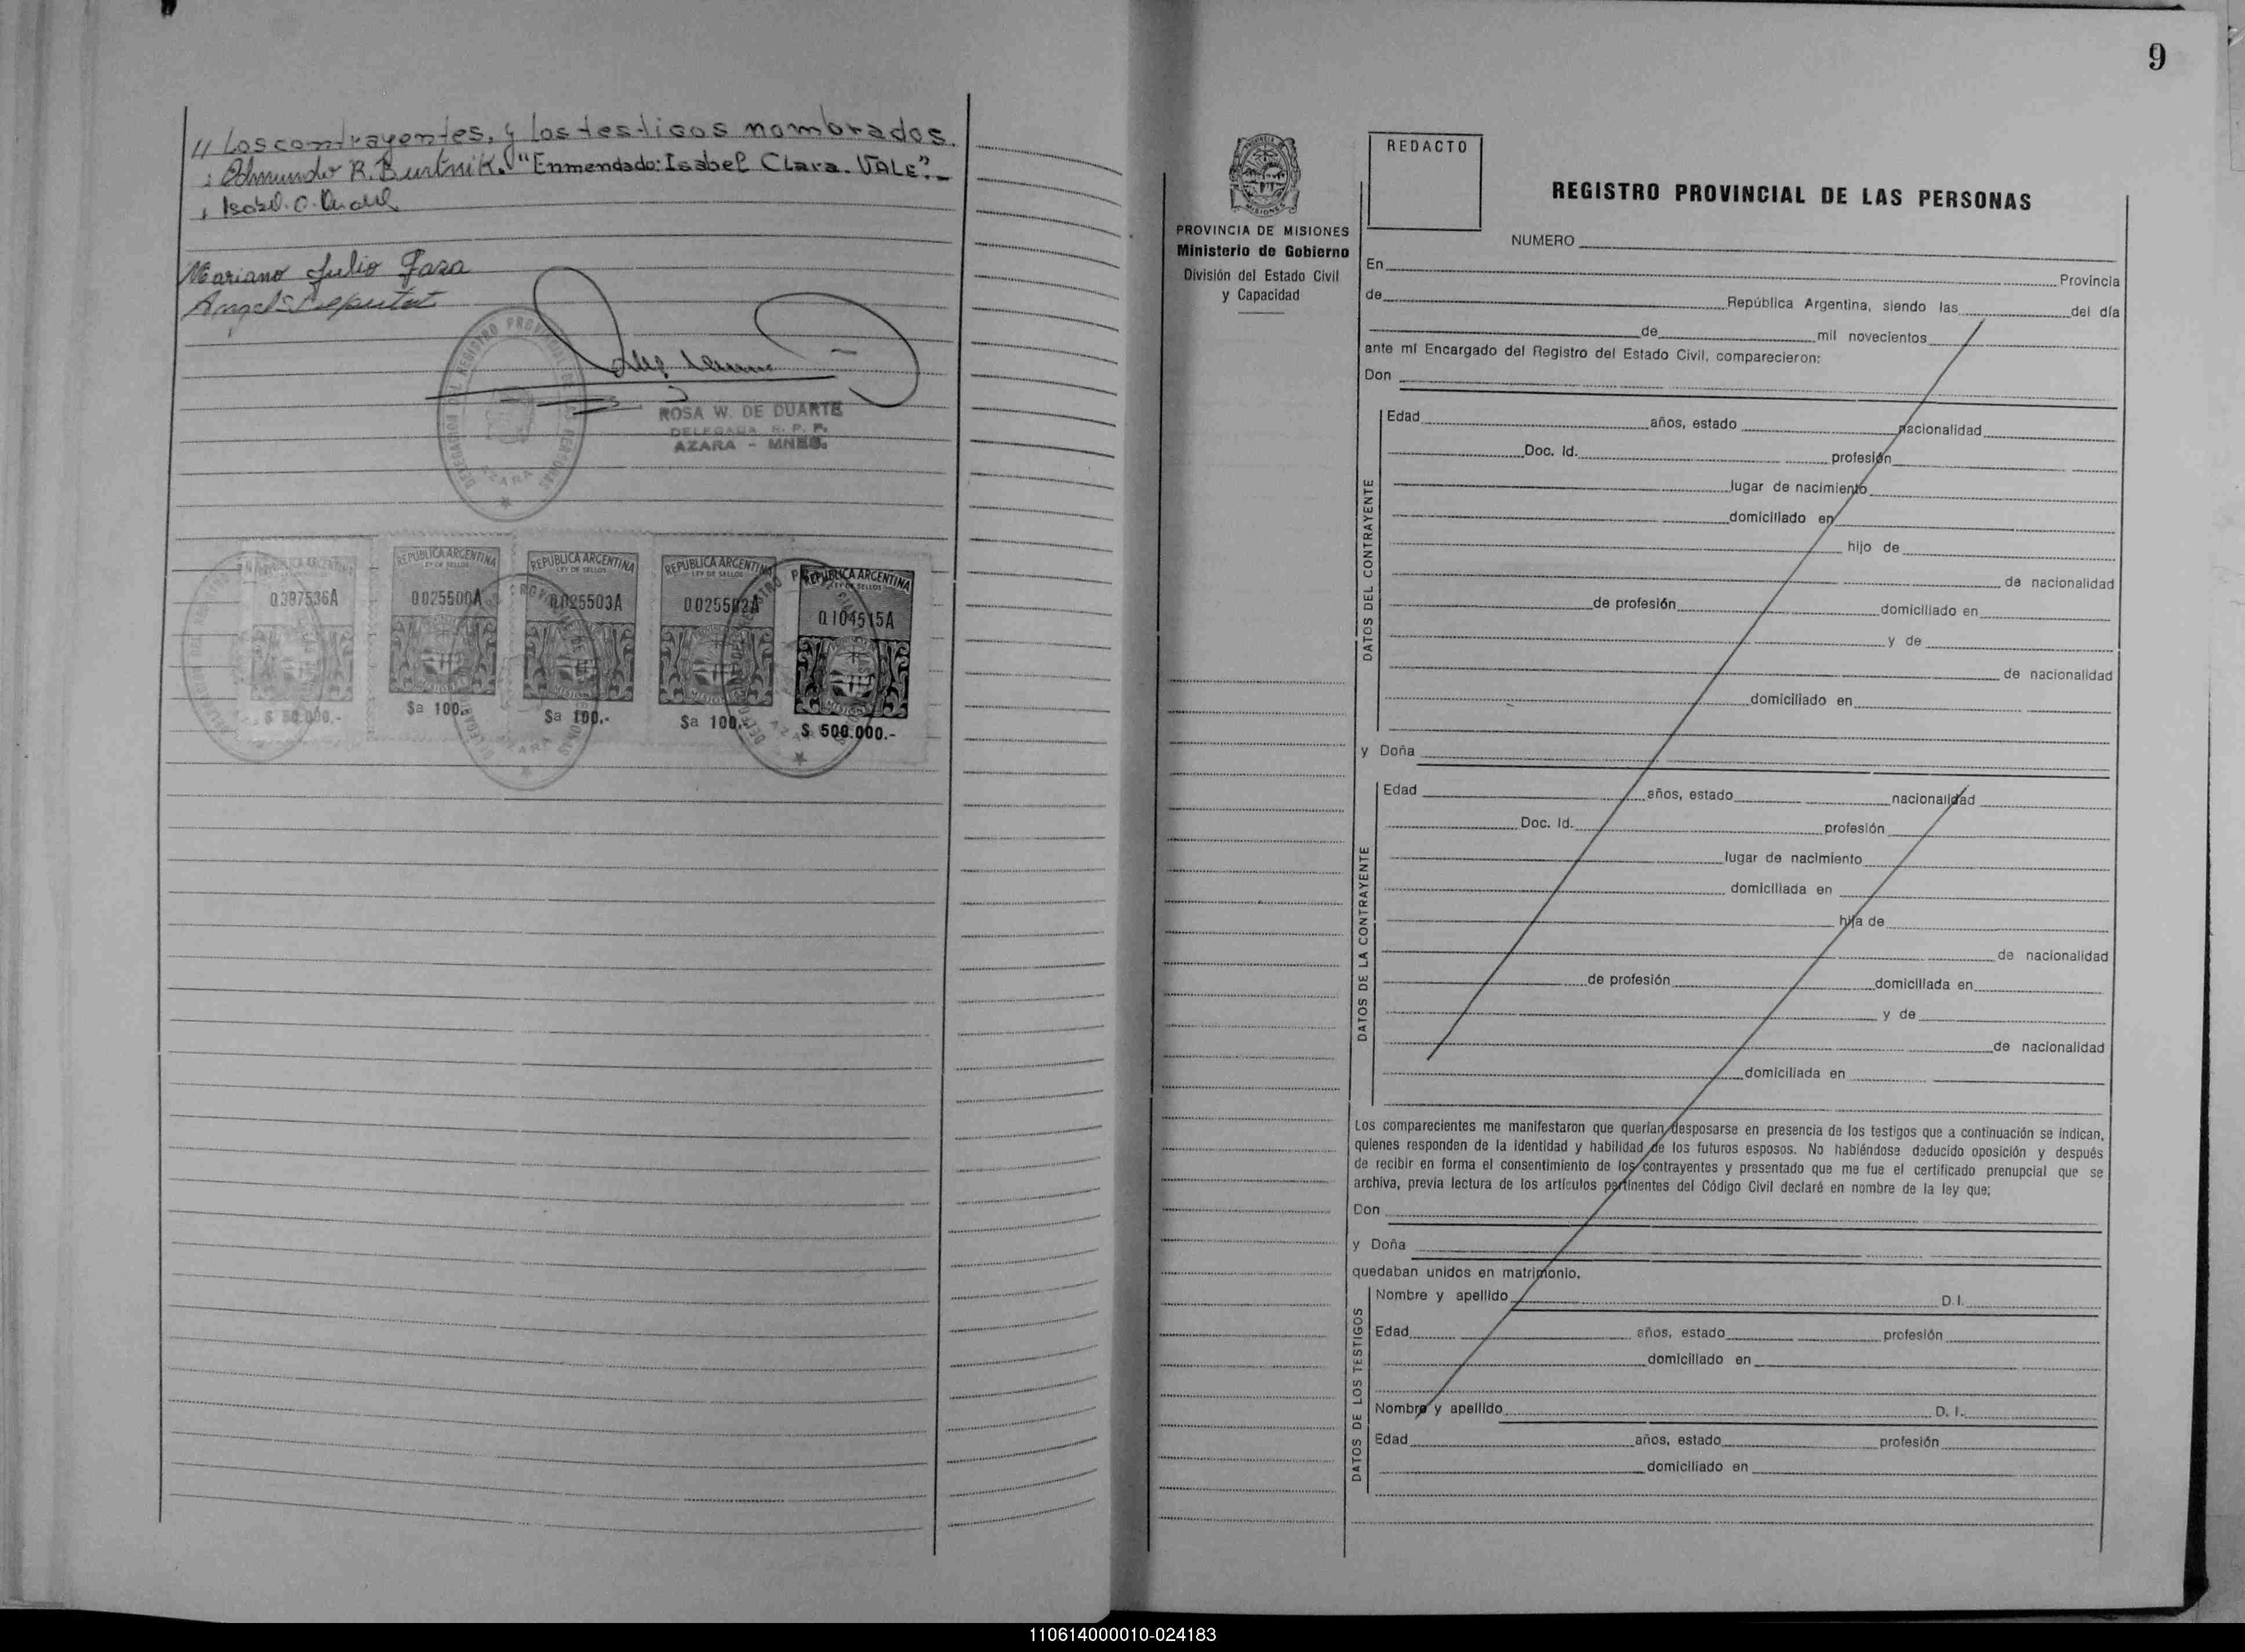 // Los contrayentes, y los testigos nombrados.
: Edmundo R. Burtnik. "Enmendado: Isabel Clara. VALE".-
: Isabel. C.
Mariano Julio
Angel
DELEGACION DEL REGISTRO PROVINCIAL DE LAS PERSONAS
AZARA
ROSA W. DE DUARTE
DELEGADA R. P. P.
AZARA - MNES.
REPUBLICA ARGENTINA
LEY DE SELLOS
0397536A
MISIONES
$ 50.000.-
REPUBLICA ARGENTINA
LEY DE SELLOS
0025500A
MISIONES
$a 100.-
REPUBLICA ARGENTINA
LEY DE SELLOS
0025503A
MISIONES
$a 100.-
REPUBLICA ARGENTINA
LEY DE SELLOS
0025502A
MISIONES
$a 100.-
REPUBLICA ARGENTINA
LEY DE SELLOS
0104515A
MISIONES
$ 500.000.-
9
PROVINCIA DE MISIONES
Ministerio de Gobierno
División del Estado Civil
y Capacidad
REDACTO
REGISTRO PROVINCIAL DE LAS PERSONAS
NUMERO
En Provincia
de República Argentina, siendo las del día
de mil novecientos
ante mí Encargado del Registro del Estado Civil, comparecieron:
Don
DATOS DEL CONTRAYENTE
Edad años, estado nacionalidad
Doc. Id. profesión
lugar de nacimiento
domiciliado en
hijo de
de nacionalidad
de profesión domiciliado en
y de
de nacionalidad
domiciliado en
y Doña
DATOS DE LA CONTRAYENTE
Edad años, estado nacionalidad
Doc. Id. profesión
lugar de nacimiento
domiciliada en
hija de
de nacionalidad
de profesión domiciliada en
y de
de nacionalidad
domiciliada en
Los comparecientes me manifestaron que querían desposarse en presencia de los testigos que a continuación se indican,
quienes responden de la identidad y habilidad de los futuros esposos. No habiéndose deducido oposición y después
de recibir en forma el consentimiento de los contrayentes y presentado que me fue el certificado prenupcial que se
archiva, previa lectura de los artículos pertinentes del Código Civil declaré en nombre de la ley que;
Don
y Doña
quedaban unidos en matrimonio.
DATOS DE LOS TESTIGOS
Nombre y apellido D.I.
Edad años, estado profesión
domiciliado en
Nombre y apellido D. I.
Edad años, estado profesión
domiciliado en
110614000010-024183